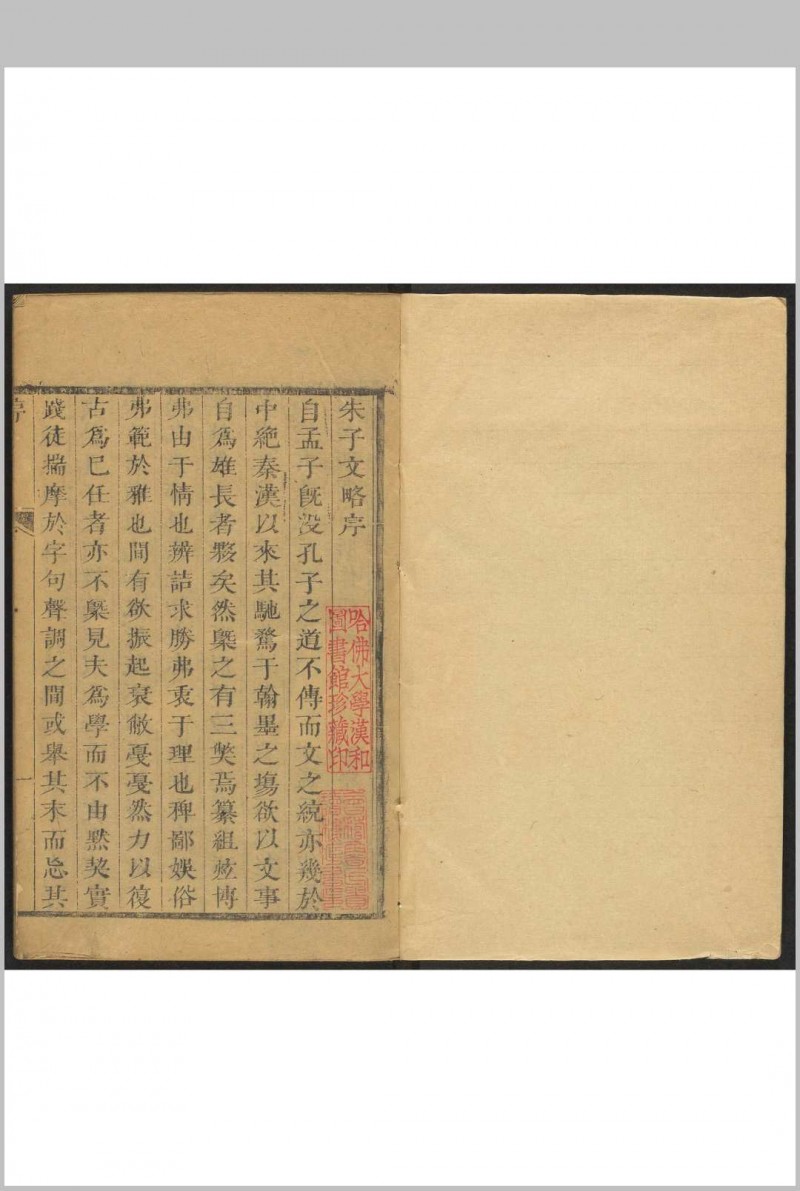 朱子文略序
自孟子旣没孔子之道不傳而文之統亦幾於
中絶秦漢以來其馳騖于翰墨之塲欲以文事
自爲雄長者夥矣然槩之有三獘焉纂組炫博
弗由于情也辨詰求勝弗衷于理也稗鄙娛俗
弗範於雅也間有欲振起衰敝戞戞然力以復
古爲已任者亦不槩見夫爲學而不由黙契實
踐徒揣摩於字句聲調之間或舉其末而忘其
序
哈佛大學漢和
圖書館珍藏印